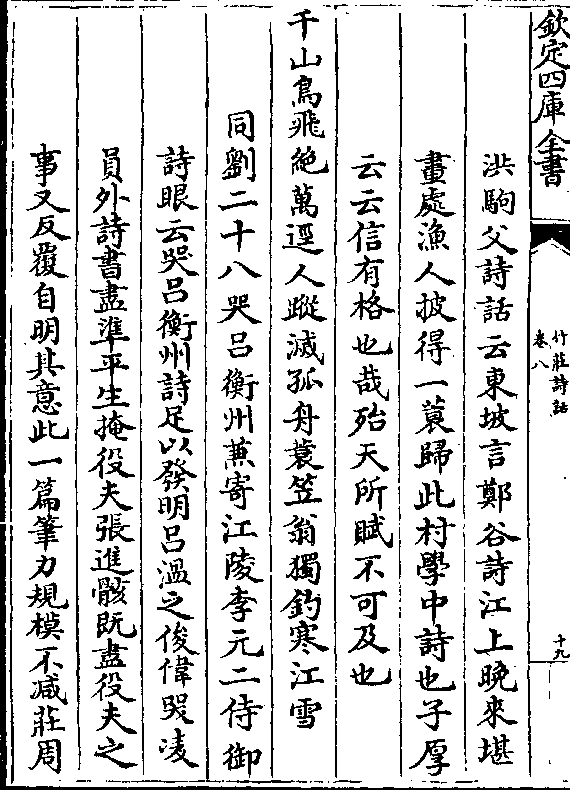 欽定四庫全書
竹莊詩話
卷八
十九
洪駒父詩話云東坡言鄭谷詩江上晚來堪
畫處漁人披得一蓑歸此村學中詩也子厚
云云信有格也哉殆天所賦不可及也
千山鳥飛絶萬逕人蹤滅孤舟蓑笠翁獨釣寒江雪
同劉二十八哭吕衡州兼寄江陵李元二侍御
詩眼云哭吕衡州詩足以發明吕溫之俊偉哭凌
員外詩書盡準平生掩役夫張進骸既盡役夫之
事又反覆自明其意此一篇筆力規模不减莊周